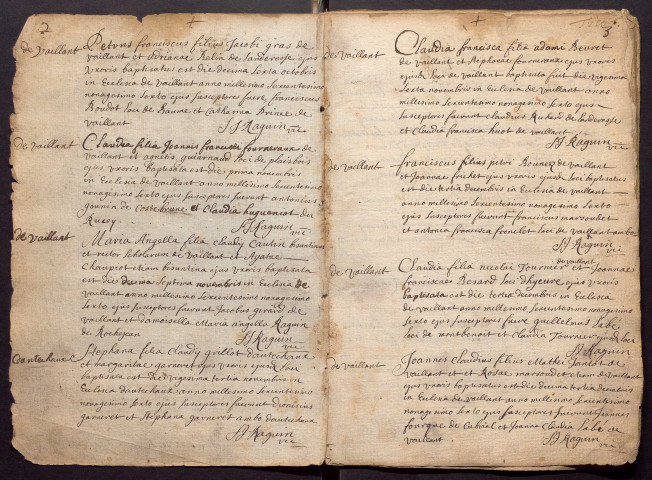 2
de vaillant
Petrus franciscus filius Jacobi gras de
vaillant et adrianae Belin de Landeresse ejus
uxoris baptisatus est die decima sexta octobris
in Ecclesia de vaillant anno millesimo sexcentesimo
nonagesimo sexto ejus susceptores fuere franciscus
Boudot loci de Baume et Catharina
vaillant
JJ Raguin vic
de vaillant
Claudia filia Joannis francisci fourneraux de
vaillant et agnetis loci de
ejus uxoris baptisata est die prima novembris
in Ecclesia de vaillant anno millesimo sexcentesimo
nonagesimo sexto ejus susceptores fuerunt antonius
de Costebrune et Claudia huguenot de
Rucey
JJ Raguin vic
de vaillant
Maria Angella filia Claudy bisuntina
et rector scholarum de vaillant et Agatae
etiam bisuntina ejus uxoris baptisata
est die decima septima novembris in Ecclesia de
vaillant anno millesimo sexcentesimo nonagesimo
sexto ejus susceptores fuerunt Jacobus girard de
vaillant et damoisella Maria angella Raguin
de Rochejean
JJ Raguin vic
dantechaux
Stephana filia Claudy grillot dantechaux
et margaritae garneret ejus uxoris ejusd loci
baptisata est die vigesima tertia novembris in
Ecclesia dantechaux anno millesimo sexcentesimo
nonagesimo sexto ejus susceptores fuerunt dionisius
garneret et Stephana garneret ambo dantechaux
JJ Raguin vic
3
de vaillant
Claudia francisca filia adami Beuret
de vaillant et Stephanae fourneraux ejus uxoris
ejusd loci de vaillant baptisata fuit die vigesima
sexta novembris in Ecclesia de vaillant anno
millesimo sexcentesimo nonagesimo sexto ejus
susceptores fuerunt Claudius de Landeresse
et Claudia francisca huot de vaillant
JJ Raguin vic
de vaillant
franciscus filius petri de vaillant
et Joannae ejus uxoris ejusd loci baptisatus
est die tertia decembris in Ecclesia de vaillant
anno millesimo sexcentesimo nonagesimo sexto
ejus susceptores fuerunt franciscus marsoudet
et antonia francisca loci de vaillant ambo
JJ Raguin vic
de vaillant
de vaillant
Claudia filia nicolai Tournier et Joannae
franciscae Besard loci ejus uxoris
baptisata est die tertia decembris in Ecclesia
de vaillant anno millesimo sexcentesimo nonagesimo
sexto ejus susceptores fuere guillelmus
loci de montbenoit et Claudia Tournier ejusd loci
JJ Raguin vic
de vaillant
Joannes Claudius filius Mathei de
vaillant et et Rosae marsoudet etiam de vaillant
ejus uxoris baptisatus est die decima tertia decembris
in Ecclesia de vaillant anno millesimo sexcentesimo
nonagesimo sexto ejus susceptores fuerunt Joannes
fourque de et Joanna Claudia de
vaillant
JJ Raguin vic